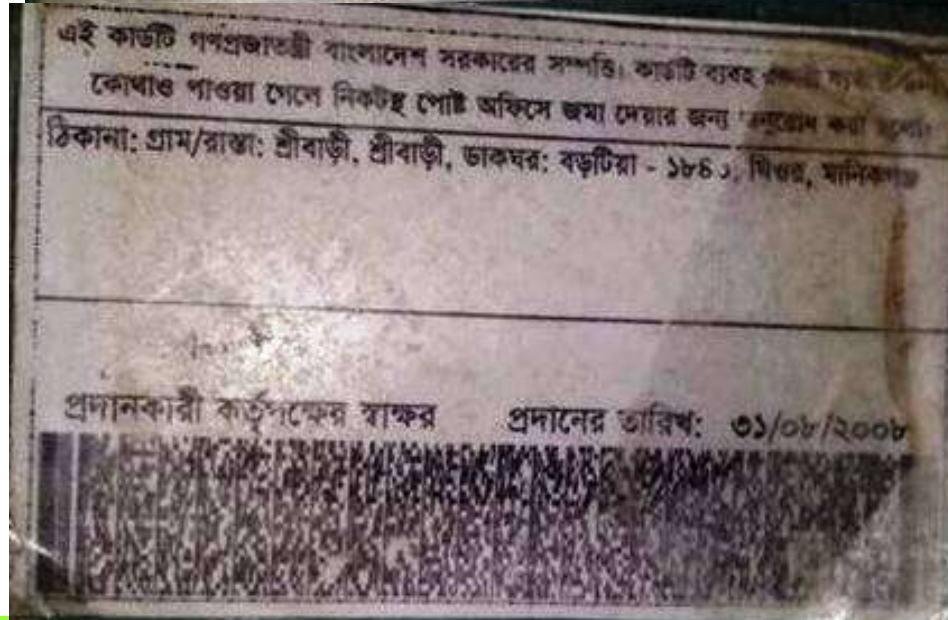 এই কার্ডটি গণপ্রজাতন্ত্রী বাংলাদেশ সরকারের সম্পত্তি। কার্ডটি ব্যবহ
কোথাও পাওয়া গেলে নিকটস্থ পোষ্ট অফিসে জমা দেয়ার জন্য অনুরোধ করা হলো।
ঠিকানা: গ্রাম/রাস্তা: শ্রীবাড়ী, শ্রীবাড়ী, ডাকঘর: বড়টিয়া - ১৮৪, ঘিওর, মানিকগঞ্জ
প্রদানকারী কর্তৃপক্ষের স্বাক্ষর প্রদানের তারিখ: ৩১/০৮/২০০৮